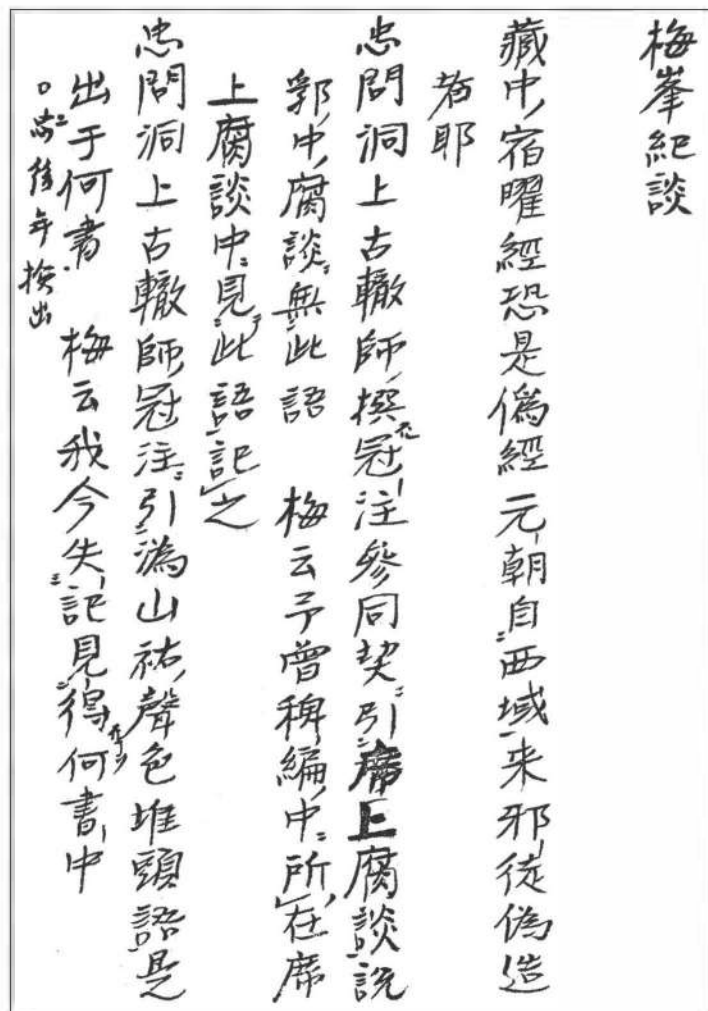 梅峯紀談
藏中宿曜經恐是僞經元朝自西域来邪徒偽造
者耶
忠問洞上古轍師撰冠注參同契引席上腐談説
郛中腐談無此語　梅云予曾稗編中所在席
上腐談中見此語記之
忠問洞上古轍師冠注引潙山祐聲色堆頭語是
出于何書　梅云我今失記見得何書中
○忠後年撿出